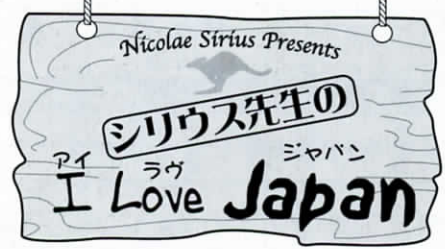 Nicolae Sirius Presents
シリウス先生の
アイ ラヴ ジャパン
I Love Japan